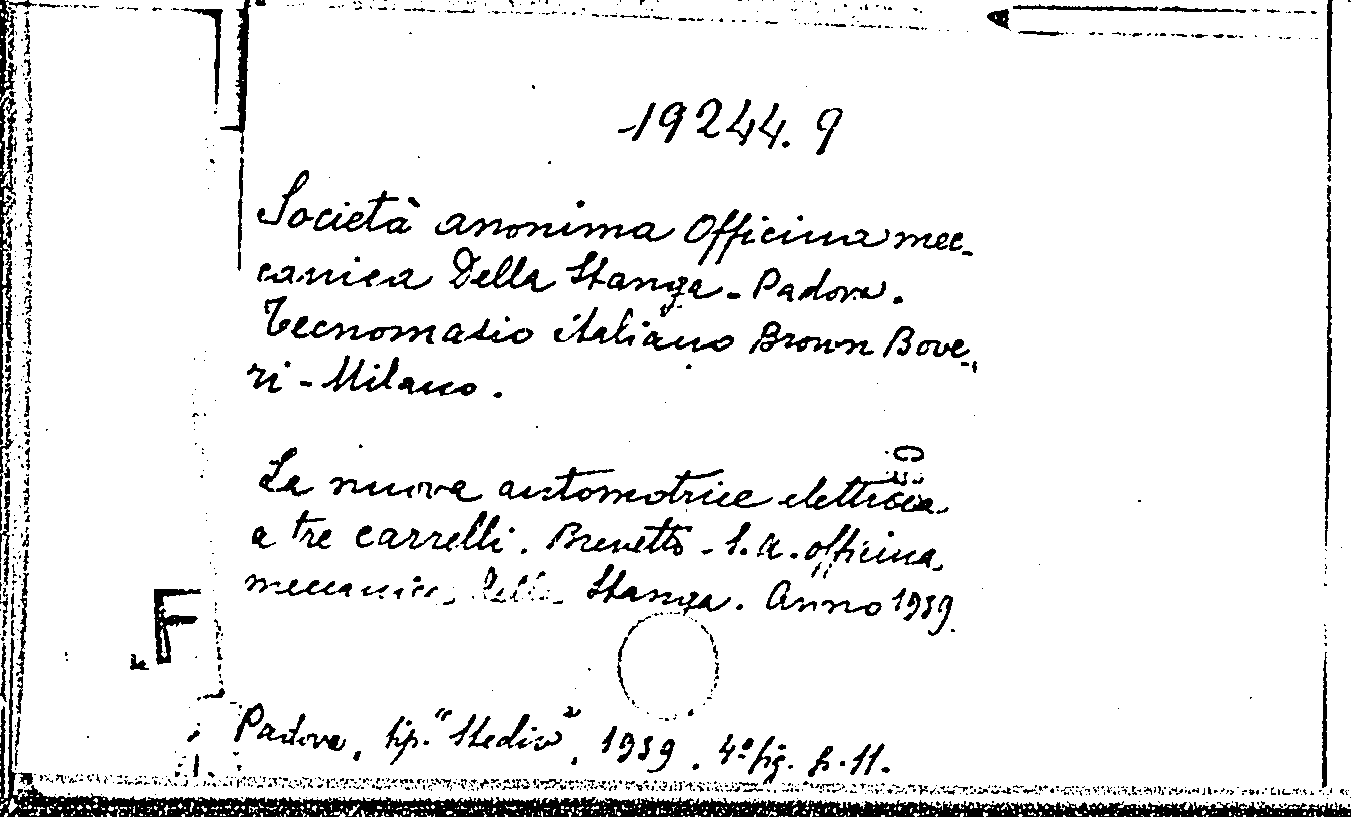 19244.9
Società anonima Officina mec-
canica Della Stanga - Padova.
Tecnomasio italiano Brown Bove-
ri - Milano.
La nuova automotrice elettrica
a tre carrelli. Brevetto - S.A. officina
meccanica della Stanga. Anno 1939.
F
Padova, tip. "Stediv", 1939. 4º fig. p. 11.